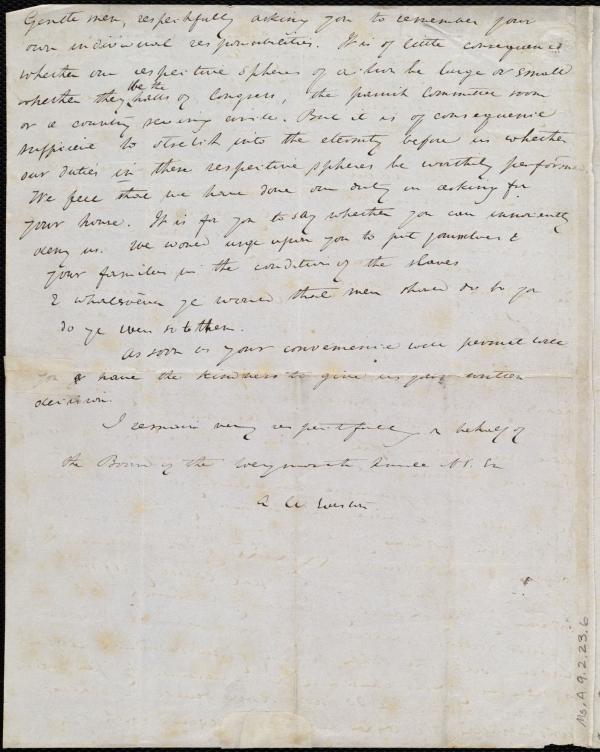 Gentlemen, respectfully asking you to remember your
own individual responsibilities. It is of little consequence
whether our respective spheres of action be large or small
whether they be the halls of Congress, the parish committee room
or a country sewing circle. But it is of consequence
sufficient to stretch into the eternity before us whether
our duties in these respective spheres be worthily performed
We feel that we have done our duty in asking for
your house. It is for you to say whether you can innocently
deny us. We would urge upon you to put yourselves &
your families in the condition of the slaves
& whatsoever ye would that men should do to you
do ye even so to them.
As soon as your convenience will permit will
you have the kindness to give us your written
decision.
I remain very respectfully in behalf of
the Board of the Weymouth Female A.S. So
A W Weston
Ms. A. 9. 2. 23. 6